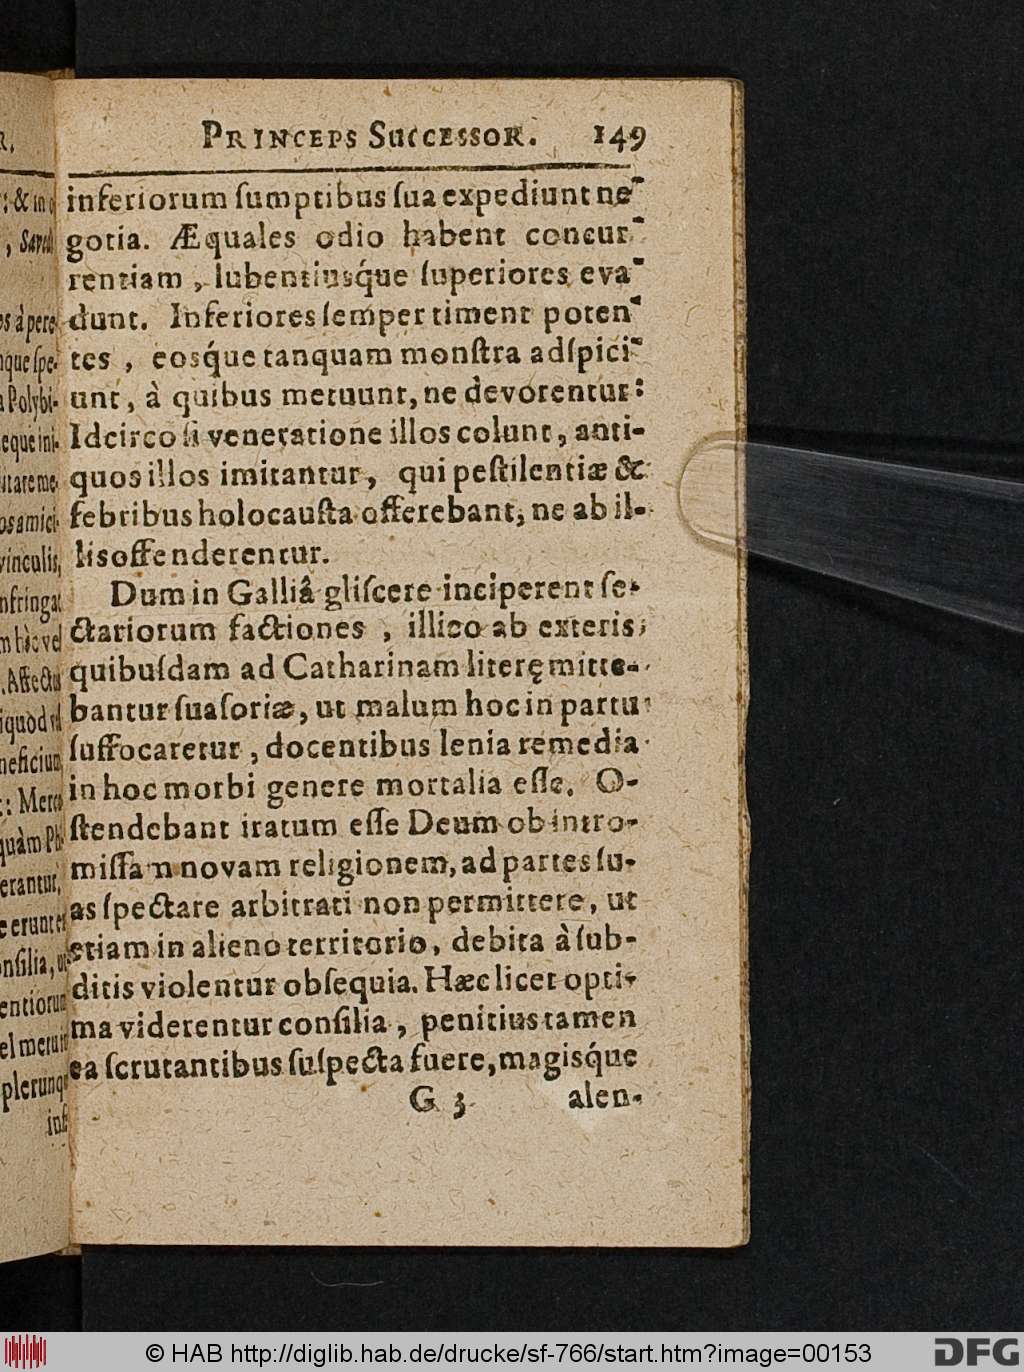 PRINCEPS SUCCESSOR. 149
inferiorum ſumptibus ſua expediunt ne-
gotia. Æquales odio habent concur-
rentiam, lubentiusq́ue ſuperiores eva-
dunt. Inferiores ſemper timent poten-
tes, eosq́ue tanquam monſtra adſpici-
unt, à quibus metuunt, ne devorentur:
Idcirco ſi veneratione illos colunt, anti-
quos illos imitantur, qui peſtilentiæ &
febribus holocauſta offerebant, ne ab il-
lis offenderentur.
Dum in Galliâ gliſcere inciperent ſe-
ctariorum factiones, illico ab exteris
quibuſdam ad Catharinam literę mitte-
bantur ſuaſoriæ, ut malum hoc in partu
ſuffocaretur, docentibus lenia remedia
in hoc morbi genere mortalia eſſe. O-
ſtendebant iratum eſſe Deum ob intro-
miſſam novam religionem, ad partes ſu-
as ſpectare arbitrati non permittere, ut
etiam in alieno territorio, debita à ſub-
ditis violentur obſequia. Hæc licet opti-
ma viderentur conſilia, penitius tamen
ea ſcrutantibus ſuſpecta fuere, magisq́ue
G 3 alen-
R.
: & in
, Saved
os à pere-
nque ſpe-
a Polybi-
eque ini-
itare me-
os amici-
vinculis,
nfringat
m hîc vel
. Affectus
iquòd vel
neficium
: Merc
quàm Ph
erantur,
e erunt et
onſilia, ut
entiorum
el metum
plerunq
inf
© HAB http://diglib.hab.de/drucke/sf-766/start.htm?image=00153
DFG